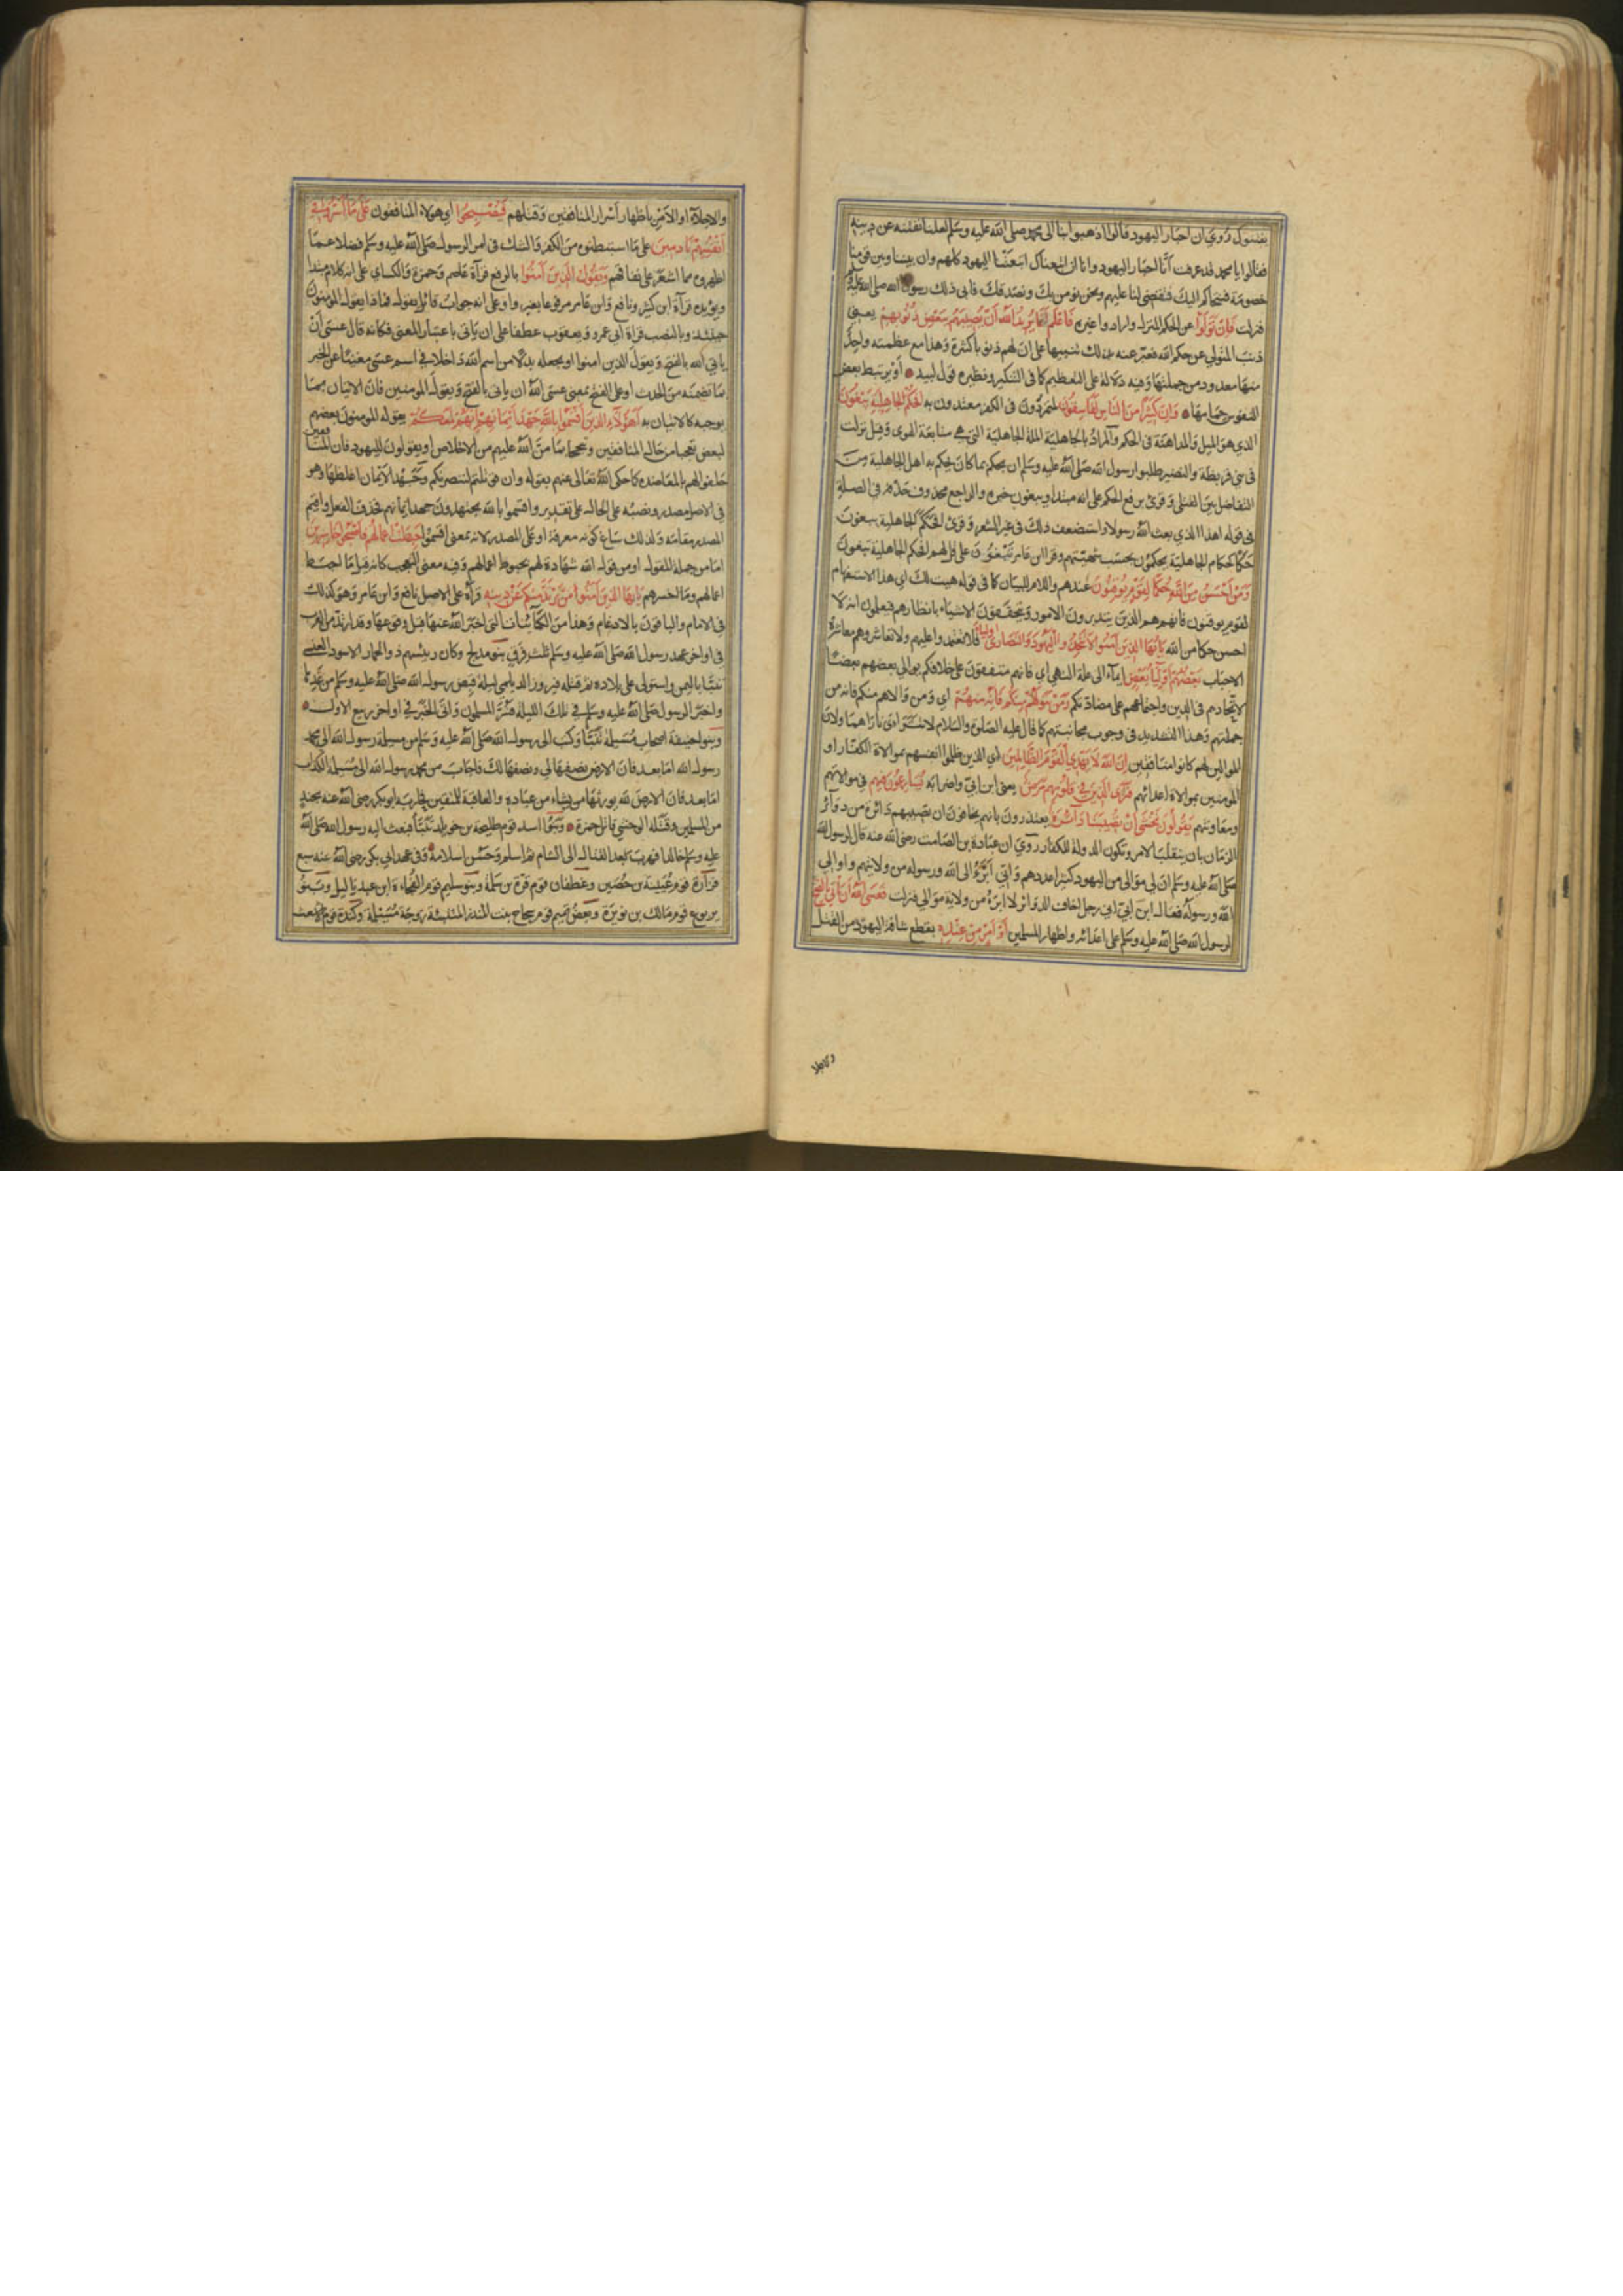 يفتنوك روي ان احبار اليهود قالوا اذهبوا بنا الى محمد صلى الله عليه وسلم لعلنا نفتنه عن دينه
فقالوا يا محمد قد عرفت أنا احبار اليهود وانا ان اتبعناك اتبعتنا اليهود كلهم وان بيننا وبين قومنا
خصومة فنتحاكم اليك فتقضي لنا عليهم ونحن نؤمن بك ونصدقك فابى ذلك رسول الله صلى الله عليه وسلم
فنزلت فان تولوا عن الحكم المنزل وارادوا غيره فاعلم انما يريد الله ان يصيبهم ببعض ذنوبهم يعني
ذنب التولي عن حكم الله فعبر عنه بذلك تنبيها على ان لهم ذنوبا كثيرة وهذا مع عظمته واحد
منها معدود من جملتها وفيه دلالة على التعظيم كما في التنكير ونظيره قول لبيد او يرتبط بعض
النفوس حمامها وان كثيرا من الناس لفاسقون لمتمردون في الكفر معتدون به افحكم الجاهلية يبغون
الذي هو الميل والمداهنة في الحكم والمراد بالجاهلية الملة الجاهلية التي هي متابعة الهوى وقيل نزلت
في بني قريظة والنضير طلبوا رسول الله صلى الله عليه وسلم ان يحكم بما كان يحكم به اهل الجاهلية من
التفاضل بين القتلى وقرئ برفع الحكم على انه مبتدا ويبغون خبره والراجع محذوف حذفه في الصلة
في قوله اهذا الذي بعث الله رسولا واستضعف ذلك في غير الشعر وقرئ افحكم الجاهلية يبغون
حكما كحكام الجاهلية يحكمون بحسب شهيتهم وقرا ابن عامر تبغون على قل لهم افحكم الجاهلية تبغون
ومن احسن من الله حكما لقوم يوقنون عندهم واللام للبيان كما في قوله هيت لك اي هذا الاستفهام
لقوم يوقنون فانهم هم الذين يتدبرون الامور ويتحققون الاشياء بانظارهم فيعلمون ان لا
احسن حكما من الله يا ايها الذين آمنوا لا تتخذوا اليهود والنصارى اولياء فلا تعتمدوا عليهم ولا تعاشروهم معاشرة
الاحباب بعضهم اولياء بعض ايماء الى علة النهي اي فانهم متفقون على خلافكم يوالي بعضهم بعضا
لاتحادهم في الدين واجتماعهم على مضادتكم ومن يتولهم منكم فانه منهم اي ومن والاهم منكم فانه من
جملتهم وهذا التشديد في وجوب مجانبتهم كما قال عليه الصلوة والسلام لا تتراءى ناراهما ولان
الموالين لهم كانوا منافقين ان الله لا يهدي القوم الظالمين اي الذين ظلموا انفسهم بموالاة الكفار او
المؤمنين بموالاة اعدائهم فترى الذين في قلوبهم مرض يعني ابن ابي واضرابه يسارعون فيهم في موالاتهم
ومعاونتهم يقولون نخشى ان تصيبنا دائرة يعتذرون بانهم يخافون ان تصيبهم دائرة من دوائر
الزمان بان ينقلب الامر وتكون الدولة للكفار روي ان عبادة بن الصامت رضي الله عنه قال لرسول الله
صلى الله عليه وسلم ان لي موالي من اليهود كثيرا عددهم واني ابرؤ الى الله ورسوله من ولايتهم واوالي
الله ورسوله فقال ابن ابي اني رجل اخاف الدوائر لا ابرؤ من ولاية موالي فنزلت فعسى الله ان يأتي بالفتح
لرسول الله صلى الله عليه وسلم على اعدائه واظهار المسلمين او امر من عنده يقطع شافة اليهود من القتل
والاجلاء او الامر باظهار اسرار المنافقين وقتلهم فيصبحوا اي هؤلاء المنافقون على ما اسروا في
انفسهم نادمين على ما استبطنوه من الكفر والشك في امر الرسول صلى الله عليه وسلم فضلا عما
اظهروه مما اشعر على نفاقهم ويقول الذين آمنوا بالرفع قرآة عاصم وحمزة والكساي على انه كلام مبتدا
ويؤيده قرآة ابن كثير ونافع وابن عامر مرفوعا بغير واو على انه جواب قائل يقول فماذا يقول المؤمنون
حينئذ وبالنصب قراة ابي عمرو ويعقوب عطفا على ان يأتي باعتبار المعنى فكانه قال عسى ان
ياتي الله بالفتح ويقول الذين امنوا او بجعله بدلا من اسم الله داخلا في اسم عسى مغنيا عن الخبر
بما تضمنه من الحدث او على الفتح بمعنى عسى الله ان ياتي بالفتح ويقول المؤمنين فان الاتيان بما
يوجبه كالاتيان به أهؤلاء الذين اقسموا بالله جهد ايمانهم انهم لمعكم يقوله المؤمنون بعضهم
لبعض تعجبا من حال المنافقين وتبجحا بما من الله عليهم من الاخلاص او يقولون لليهود فان المنافقين
حلفوا لهم بالمعاضدة كما حكى الله تعالى عنهم بقوله وان قوتلتم لننصرنكم وجهد الايمان اغلظها وهو
في الاصل مصدر ونصبه على الحال على تقدير واقسموا بالله يجتهدون جهد ايمانهم فحذف الفعل واقيم
المصدر مقامه ولذلك ساغ كونه معرفة او على المصدر لانه بمعنى اقسموا حبطت اعمالهم فاصبحوا خاسرين
اما من جملة المقول او من قول الله شهادة لهم بحبوط اعمالهم وفيه معنى التعجب كانه قيل ما احبط
اعمالهم وما اخسرهم يا ايها الذين آمنوا من يرتد منكم عن دينه قرأه على الاصل نافع وابن عامر وهو كذلك
في الامام والباقون بالادغام وهذا من الكائنات التي اخبر الله عنها قبل وقوعها وقد ارتد من العرب
في اواخر عهد رسول الله صلى الله عليه وسلم ثلث فرق بنو مدلج وكان رئيسهم ذو الحمار الاسود العنسي
تنبا باليمن واستولى على بلاده ثم قتله فيروز الديلمي ليلة قبض رسول الله صلى الله عليه وسلم من غدها
واخبر الرسول صلى الله عليه وسلم في تلك الليلة فسر المسلمون واتى الخبر في اواخر ربيع الاول
وبنو حنيفة اصحاب مسيلمة تنبا وكتب الى رسول الله صلى الله عليه وسلم من مسيلمة رسول الله الى محمد
رسول الله اما بعد فان الارض نصفها لي ونصفها لك فاجاب من محمد رسول الله الى مسيلمة الكذاب
اما بعد فان الارض لله يورثها من يشاء من عباده والعاقبة للمتقين فحاربه ابو بكر رضي الله عنه بجند
من المسلمين وقتله الوحشي قاتل حمزة وبنوا اسد قوم طليحة بن خويلد تنبأ فبعث اليه رسول الله صلى الله
عليه وسلم خالدا فهرب بعد القتال الى الشام ثم اسلم وحسن اسلامه وفي عهد ابي بكر رضي الله عنه سبع
فزارة قوم عيينة بن حصين وغطفان قوم قرة بن سلمة وبنو سليم قوم الفجاءة ابن عبد ياليل وبنو
يربوع قوم مالك بن نويرة وبعض تميم قوم سجاح بنت المنذر المتنبئة زوجة مسيلمة وكندة قوم الاشعث
والاجلا